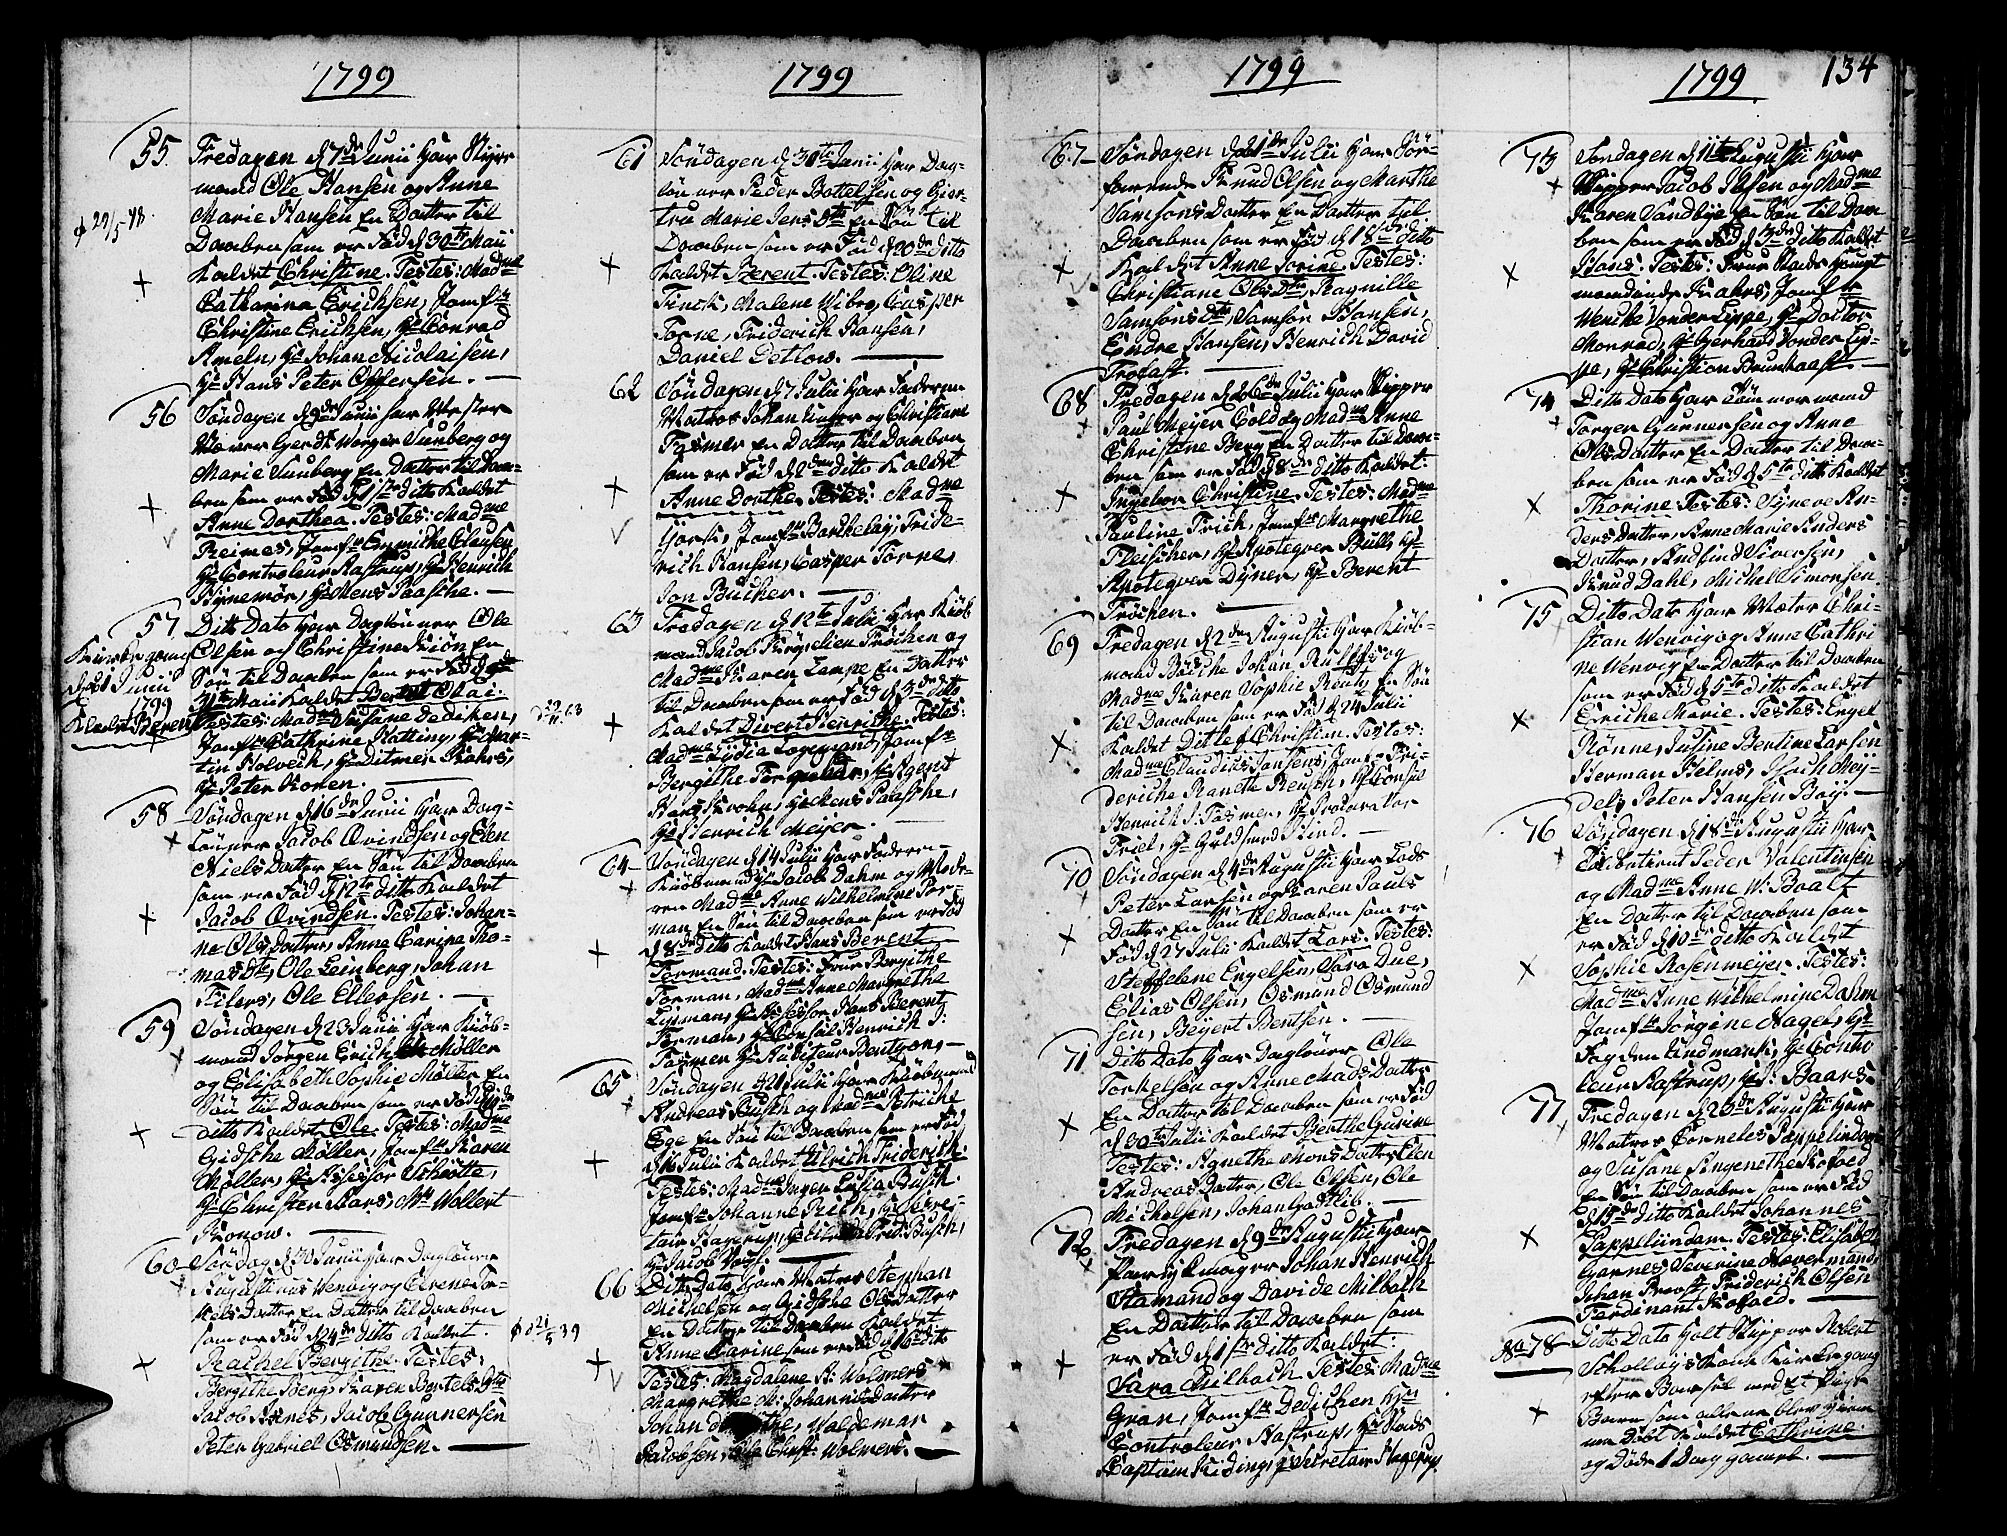 1799
55. Fredagen d 7de Junii har Styrr
mand Ole Hansen og Anne
Marie Hansen En Datter til
Daaben som er Fød d 30te Maii
Kaldet Christine. Testes: Madme
Catharina Erichsen, Jomfr
Christine Erichsen, Hr Conrad
Ameln, Hr Johan Nicolaisen,
Hr Hans Peter Offersen.
56 Søndagen d 9de Junii har Mester
Væver Gerdt Worger Sunberg og
Marie Sunberg En Datter til Daa-
ben som er Fød d 1ste ditto Kaldet
Anne Dorthea. Testes: Madme
Reimes, Jomfr Emmiche Clausen
Hr Controleur Rastrup, Hr Henrich
Hynemør, Hr Mens Paasche.
57 Ditto Dato har Dagløuner Ole
Olsen og Christine Kiøn En
Søn til Daaben som er Fød d
Maii Kaldet Berent Olai.
Testes: Madme Susane Dediken,
Jomfr Cathrine Rotting, Hr Mar-
tin Holveck, Hr Ditmer Kahrs,
Hr Peter Koren.
d 21 Junii
1799
Kaldet Berent
58 Søndagen d 16de Junii har Dag-
Løuner Jacob Qvindsen og Elen
Niels Datter En Søn til Daaben
som er Fød d 12te ditto Kaldet
Jacob Qvindsen. Testes: Johan-
ne Ols Datter, Anne Carina Tho-
mas Dtr, Ole Leinberg, Johan
Eilers, Ole Ellersen.
59 Søndagen d 23 Junii har Kiøb-
mand Jørgen Erich Møller
og Elisabeth Sophie Møller En
Søn til Daaben som er Fød d
ditto Kaldet Ole. Testes: Madme
Gidsche Møller, Jomfr Karen
Møller, Hr Assessor Schøtte,
Hr Christen Aars, Mr Wollert
Konow.
60 Søndag d 30 Junii har Dagløuner
Augustinus Wenvig og Elrene Tor-
kels Datter En Datter til Daaben
som er Fød d 24de ditto Kaldet.
Rachel Bergithe. Testes:
Bergithe Berg, Karen Bertels Dtr
Jacob Irnes, Jacob Gunnersen
Peter Gabriel Osmundsen.
1799
61 Søndagen d 30te Junii har Dag-
løuner Peder Bottelsen og Gior-
tru Marie Jens Dtr En Søn til
Daaben som er Fød d 20de ditto
Kaldet Berent. Testes: Eline
Finck, Malene Wiberg, Casper
Torne, Friderich Hansen,
Daniel Detlow.
62 Søndagen d 7 Julii har Faderen
Matros Johan Linster og Christiane
Fasmer En Datter til Daaben
som er Fød d 2den ditto Kaldet
Anne Dorthe. Testes: Madme
Giørk, Jomfr Barthelay, Fride-
rich Hansen, Casper Torne,
Jon Bücher.
63 Fredagen d 12te Julii har Kiøb
mand Jacob Jürgelien Trøchen og
Madme Karen Lampe En Datter
til Daaben som er Fød d 3de ditto
Kaldet Divert Henricke. Testes:
Madme Lydia Logemand, Jomfr
Bergithe Forman, Hr Agent
Hans Krohn, Hr Chens Paasche,
Hr Henrich Meyer.
64 Søndagen d 14 Julii har Faderen
Kiøbmand Hr Jacob Dahm og Mode-
ren Madme Anne Wilhelmine For-
man En Søn til Daaben som er Fød
d 8de ditto Kaldet Hans Berent
Formand. Testes: Frue Bergithe
Forman, Madme Anne Margrethe
Lipman, Hr Assessor Hans Berent
Forman, Hr Consul Henrich J:
Fasmer Hr Auditeur Bentzon,
65 Søndagen d 21 Julii har Kiøbmand
Andreas Busch og Madme Petriche
Ege En Søn til Daaben som er Fød
d 16 Julii Kaldet Ulrich Friderich.
Testes: Madme Inger Lucia Busch.
Jomfr Johanne Rieck, Hr Secre-
tair Hagerup, Hr Ulrich Frid: Busch,
Hr Jacob Voss.
66 Ditto Dato har Matros Stephan
Michelsen og Gidsche Ols Datter
En Datter til Daaben Kaldet
Anne Carine som er Fød d 16de ditto
Testes: Magdalene A: Wolmers
Margrethe M: Johannis Datter
Johan Waldemar
Jacobsen, Ole Christ: Wolmers.
1799
67 Søndagen d 21de Julii har Sør-
farende Knud Olsen og Marthe
Samsons Datter En Datter til
Daaben som er Fød d 18de ditto
Kaldet Anne Serine. Testes:
Christiane Ols Dtr, Ragnille
Samsons Dtr, Samson Hansen,
Endre Hansen, Henrich David
Trofast.
68 Fredagen d 26de Julii har Skipper
Paul Meyer Cold og Madme Anne
Christine Berg En Datter til Daa-
ben som er Fød d 8de ditto Kaldet:
Ingebor Christine. Testes: Madme
Pauline Frich, Jomfr Margrethe
Fleischer, Hr Apoteqver Bull, Hr
Apoteqver Dyner, Hr Berent
Trøchen.
69 Fredagen d 2de Augustii har Kiøb-
mand Børche Johan Rulffs og
Madme Karen Sophie Reutz En Søn
til Daaben som er Fød d 24 Julii
Kaldet Ditlef Christian. Testes:
Madme Claudius Jansens, Jomfr Fri-
deriche Ranette Reusch, Hr Consul
Henrich J: Fasmer, Hr Procurator
Friel, Hr Guldsmed Hind.
70 Søndagen d 4de Augustii har Lods
Peter Larsen og Karen Pauls
Datter En Søn til Daaben som er
Fød d 27 Julii Kaldet Lars. Testes:
Steffelene Engelsen, Sara Due,
Elias Olsen, Osmund Osmund
sen, Beyert Bentsen.
71 Ditto Dato har Dagløuner Ole
Torkelsen og Anne Mads Datter
En Datter til Daaben som er Fød
d 30te Julii Kaldet Berthe Gurine
Testes: Agnethe Mons Datter Elen
Andreas Datter, Ole Olsen, Ole
Michelsen, Johan Godtlib.
72 Fredagen d 9de Augustii har
Parykmager Johan Henrich
Stamand og Davide Milbach
En Datter til Daaben som
er Fød d 1ste ditto Kaldet:
Sara Milbach Testes: Madme
Gran, Jomfr Dedichen Hr
Controleur Rastrup, Hr Stads
Captain Riding, Hr Secretair Hagerup
1799 134
73 Søndagen d 11te Augustii har
Skipper Jacob Ibsen og Madme
Karen Sandbye En Søn til Daa
ben som er Fød d 3de ditto Kaldet
Hans. Testes: Frue Stads Haupt
mandinde Kahrs, Jomfr
Wencke Vonder Lippe, Hr Doctor
Monrad, Hr Gerhard Vonder Lip-
pe, Hr Christian Brunhaust.
74 Ditto Dato har Tømmermand
Torger Gunnersen og Anne
Ols Datter En Datter til Daa-
ben som er Fød d 5te ditto Kaldet
Thorine Testes: Synneve An-
ders Datter, Anne Marie Anders
Datter, Andfind Siversen,
Knud Dahl, Michel Simonsen.
75 Ditto Dato har Mæter Chri-
stian Wenvig og Anne Cathri
ne Wenvig En Datter til Daaben
som er Fød d 5te ditto Kaldet
Ericke Marie. Testes: Engel
Rønne, Susine Bertine Larsen
Herman Helms, Isach Mey-
del, Peter Hansen Bøy.
76 Søndagen d 18de Augustii har
Tidbetient Peder Valentinsen
og Madme Anne W: Baalt
En Datter til Daaben som
er Fød d 10de ditto Kaldet
Sophie Rosenmeyer. Testes:
Madme Anne Wilhelmine Dahm
Jomfr Jørgine Nagel, Hr
Fag den Lindmark, Hr Contro
leur Rastrup, Hr J: Baars.
77 Fredagen d 23de Augustii har
Matros Corneles Pappelindam
og Susane Angenethe Kofoed
En Søn til Daaben som er Fød
d 15de ditto Kaldet Johannes
Pappeliindam. Testes: Elisabet
Garnes, Severine Havermand,
Johan Prooft, Friderich Olsen
Ferdinant Kofoed.
78 Ditto Dato holt Skipper Robert
Schollays Kone Kirkegang
efter Barsel med Et Pige
Barn som allene blev hiem
me Døbt Kaldet Cathrine.
og Døde 1 Dag gamel.